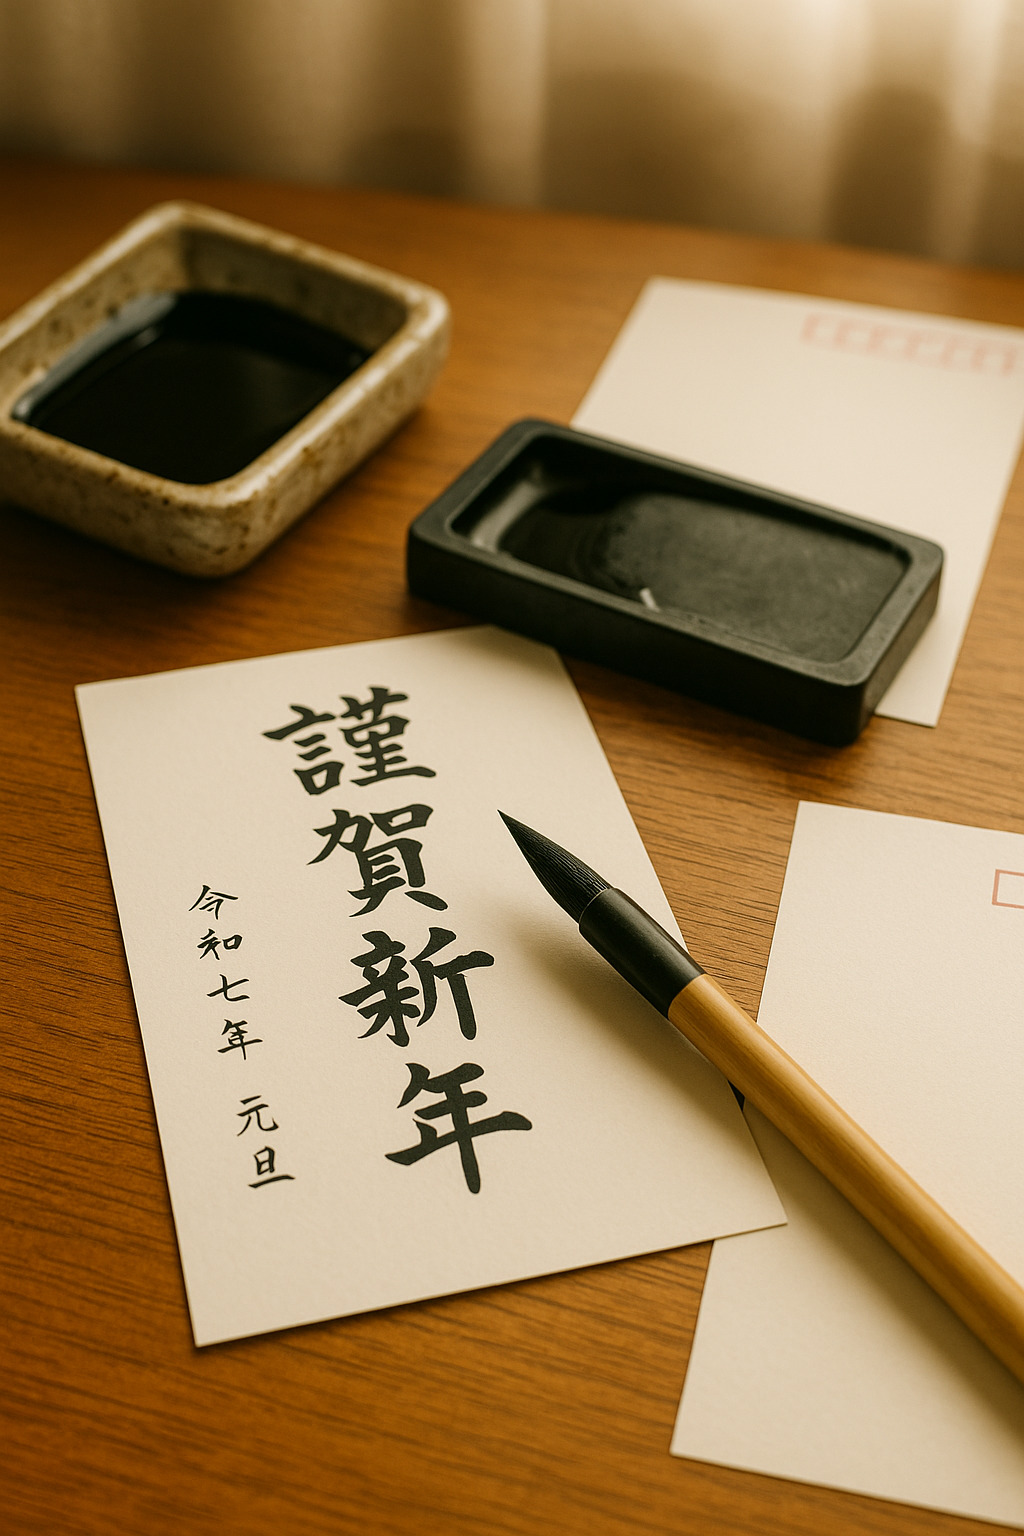 謹賀新年
令和七年 元旦